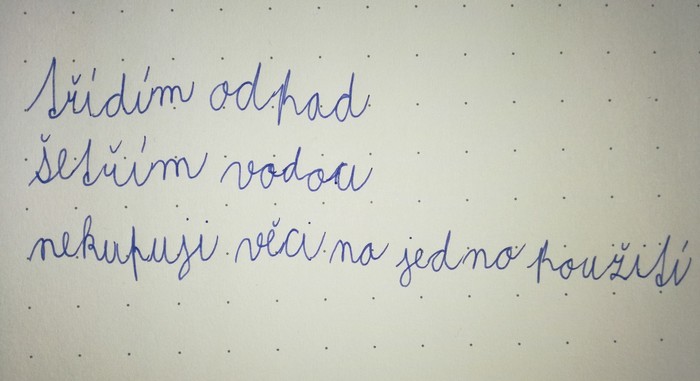 třídím odpad
šetřím vodou
nekupuji věci na jedno použití